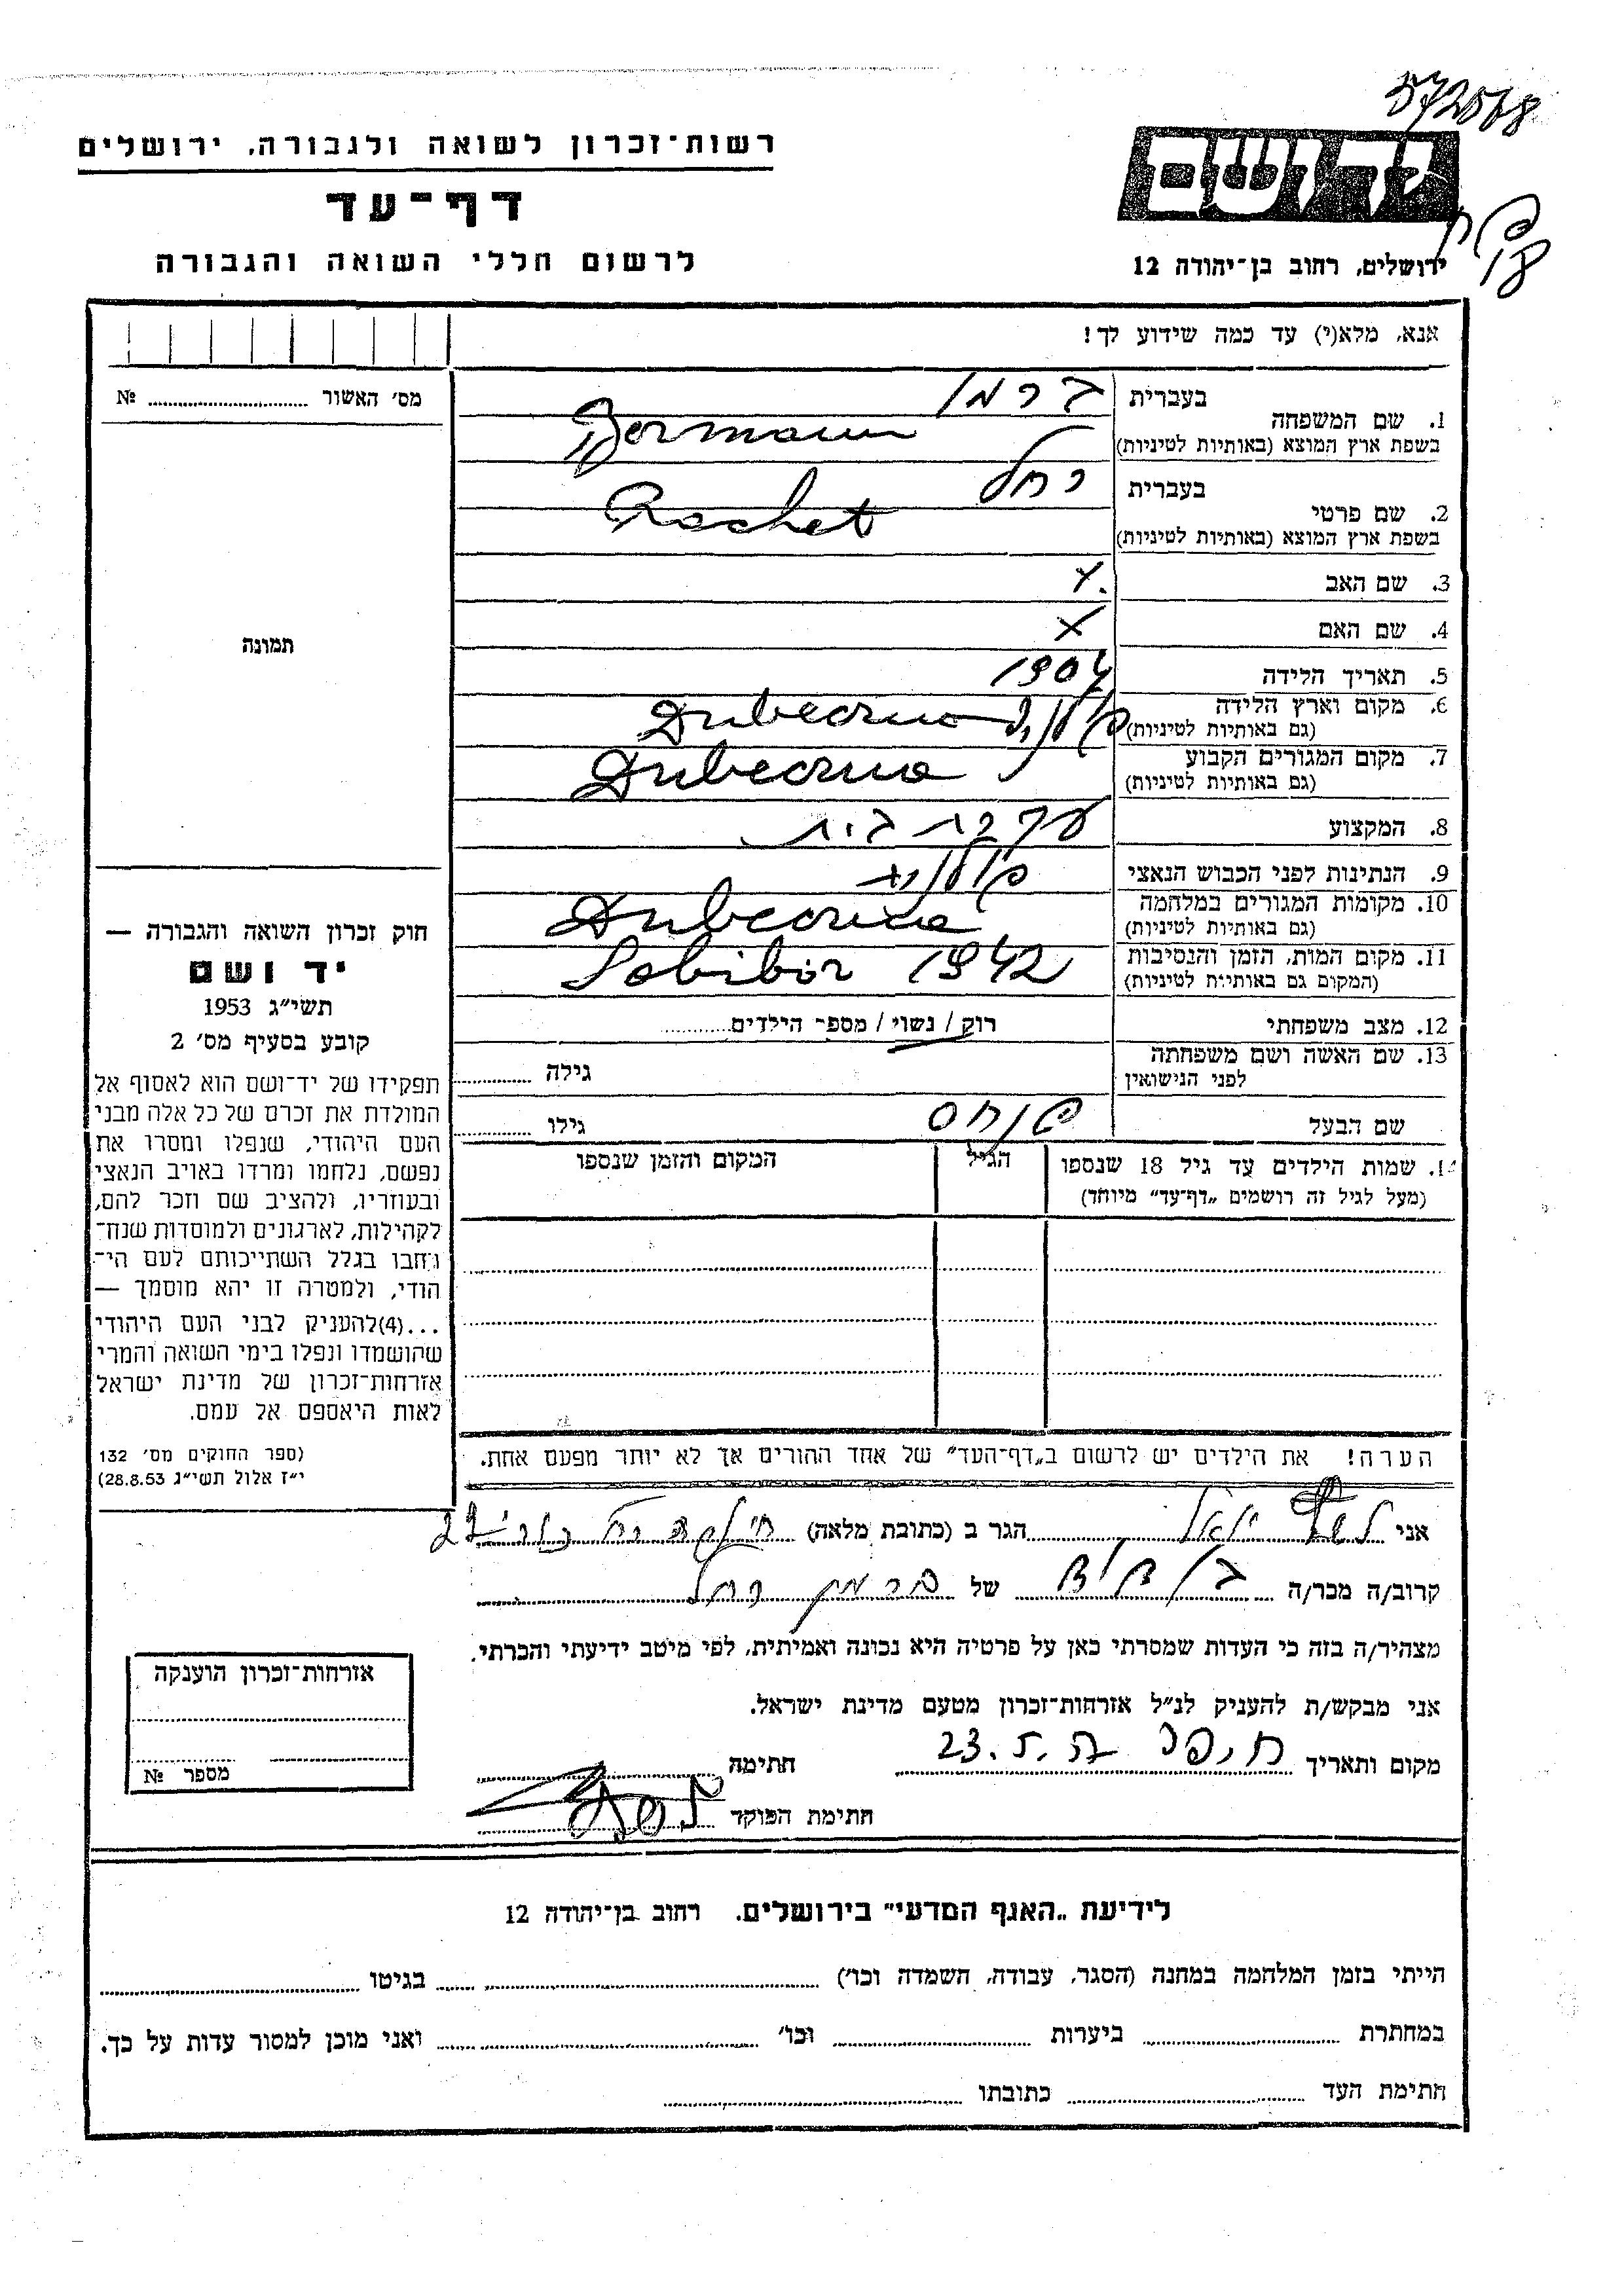 572568
רשות־זכרון לשואה ולגבורה, ירושלים
דף־עד
לרשום חללי השואה והגבורה
יד ושם
ירושלים, רחוב בן־יהודה 12
אנא, מלא(י) עד כמה שידוע לך!
1. שם המשפחה
בעברית ברמן
בשפת ארץ המוצא (באותיות לטיניות) Bermann
2. שם פרטי
בעברית רחל
בשפת ארץ המוצא (באותיות לטיניות) Rachel
3. שם האב X
4. שם האם X
5. תאריך הלידה 1904
6. מקום וארץ הלידה (גם באותיות לטיניות) פולניה Dubeczno
7. מקום המגורים הקבוע (גם באותיות לטיניות) Dubeczno
8. המקצוע עקרת בית
9. הנתינות לפני הכבוש הנאצי פולניה
10. מקומות המגורים במלחמה (גם באותיות לטיניות) Dubeczno
11. מקום המות, הזמן והנסיבות (המקום גם באותיות לטיניות) Sobibór 1942
12. מצב משפחתי רוק / נשוי / מספר הילדים
13. שם האשה ושם משפחתה לפני הנישואין גילה
שם הבעל פנחס גילו
14. שמות הילדים עד גיל 18 שנספו
(מעל לגיל זה רושמים „דף־עד” מיוחד)
הגיל
המקום והזמן שנספו
הערה! את הילדים יש לרשום ב„דף־העד” של אחד ההורים אך לא יותר מפעם אחת.
מס׳ האשור № 
תמונה
חוק זכרון השואה והגבורה —
יד ושם
תשי״ג 1953
קובע בסעיף מס׳ 2
תפקידו של יד־ושם הוא לאסוף אל
המולדת את זכרם של כל אלה מבני
העם היהודי, שנפלו ומסרו את
נפשם, נלחמו ומרדו באויב הנאצי
ובעוזריו, ולהציב שם וזכר להם,
לקהילות, לארגונים ולמוסדות שנח־
רבו בגלל השתייכותם לעם הי־
הודי, ולמטרה זו יהא מוסמך —
...(4)להעניק לבני העם היהודי
שהושמדו ונפלו בימי השואה והמרי
אזרחות־זכרון של מדינת ישראל
לאות היאספם אל עמם.
(ספר החוקים מס׳ 132
י״ז אלול תשי״ג 28.8.53)
אני יואל הגר ב (כתובת מלאה)
קרוב/ה מכר/ה של ברמן רחל
מצהיר/ה בזה כי העדות שמסרתי כאן על פרטיה היא נכונה ואמיתית, לפי מיטב ידיעתי והכרתי.
אני מבקש/ת להעניק לנ״ל אזרחות־זכרון מטעם מדינת ישראל.
מקום ותאריך חיפה 23.5. חתימה
חתימת הפוקד
אזרחות־זכרון הוענקה
מספר №
לידיעת „האגף המדעי” בירושלים, רחוב בן־יהודה 12
הייתי בזמן המלחמה במחנה (הסגר, עבודה, השמדה וכו׳) בגיטו
במחתרת ביערות וכו׳ ואני מוכן למסור עדות על כך.
חתימת העד כתובתו